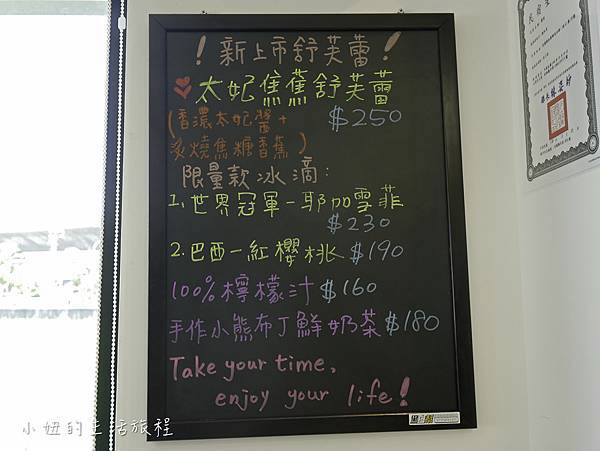 ！新上市舒芙蕾！
❤太妃焦蕉舒芙蕾
(香濃太妃醬+ $250
炙燒焦糖香蕉)
限量款冰滴：
1.世界冠軍－耶加雪菲
$230
2.巴西－紅櫻桃 $190
100%檸檬汁 $160
手作小熊布丁鮮奶茶 $180
Take your time,
enjoy your life!
小妞的生活旅程